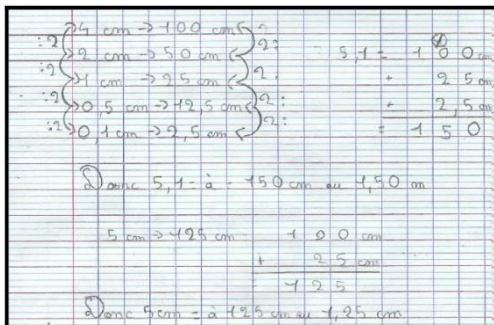 :2 4 cm → 100 cm 2:
:2 2 cm → 50 cm 2:
:2 1 cm → 25 cm 2:
:2 0,5 cm → 12,5 cm 2:
0,1 cm → 2,5 cm
5,1 = 100 cm
+ 25 cm
+ 2,5 cm
= 150
Donc 5,1 = à = 150 cm ou 1,50 m
5 cm → 125 cm
100 cm
+ 25 cm
= 125
Donc 5 cm = à 125 cm ou 1,25 cm